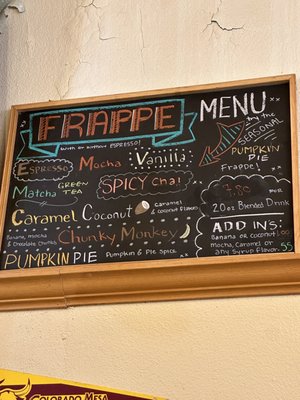 FRAPPE MENU
With or without ESPRESSO!
try the
SEASONAL
PUMPKIN
PIE
Frappe!
ESPRESSO Mocha Vanilla
Matcha GREEN TEA SPICY Chai
Caramel Coconut caramel
& coconut flavor
Banana, mocha
& Chocolate Chunks Chunky Monkey
PUMPKIN PIE Pumpkin & Pie Spice
7.80
FOR
20oz Blended Drink
ADD IN'S:
Banana or coconut 1.00
Mocha, Caramel or
any Syrup Flavor .55
COLORADO MESA